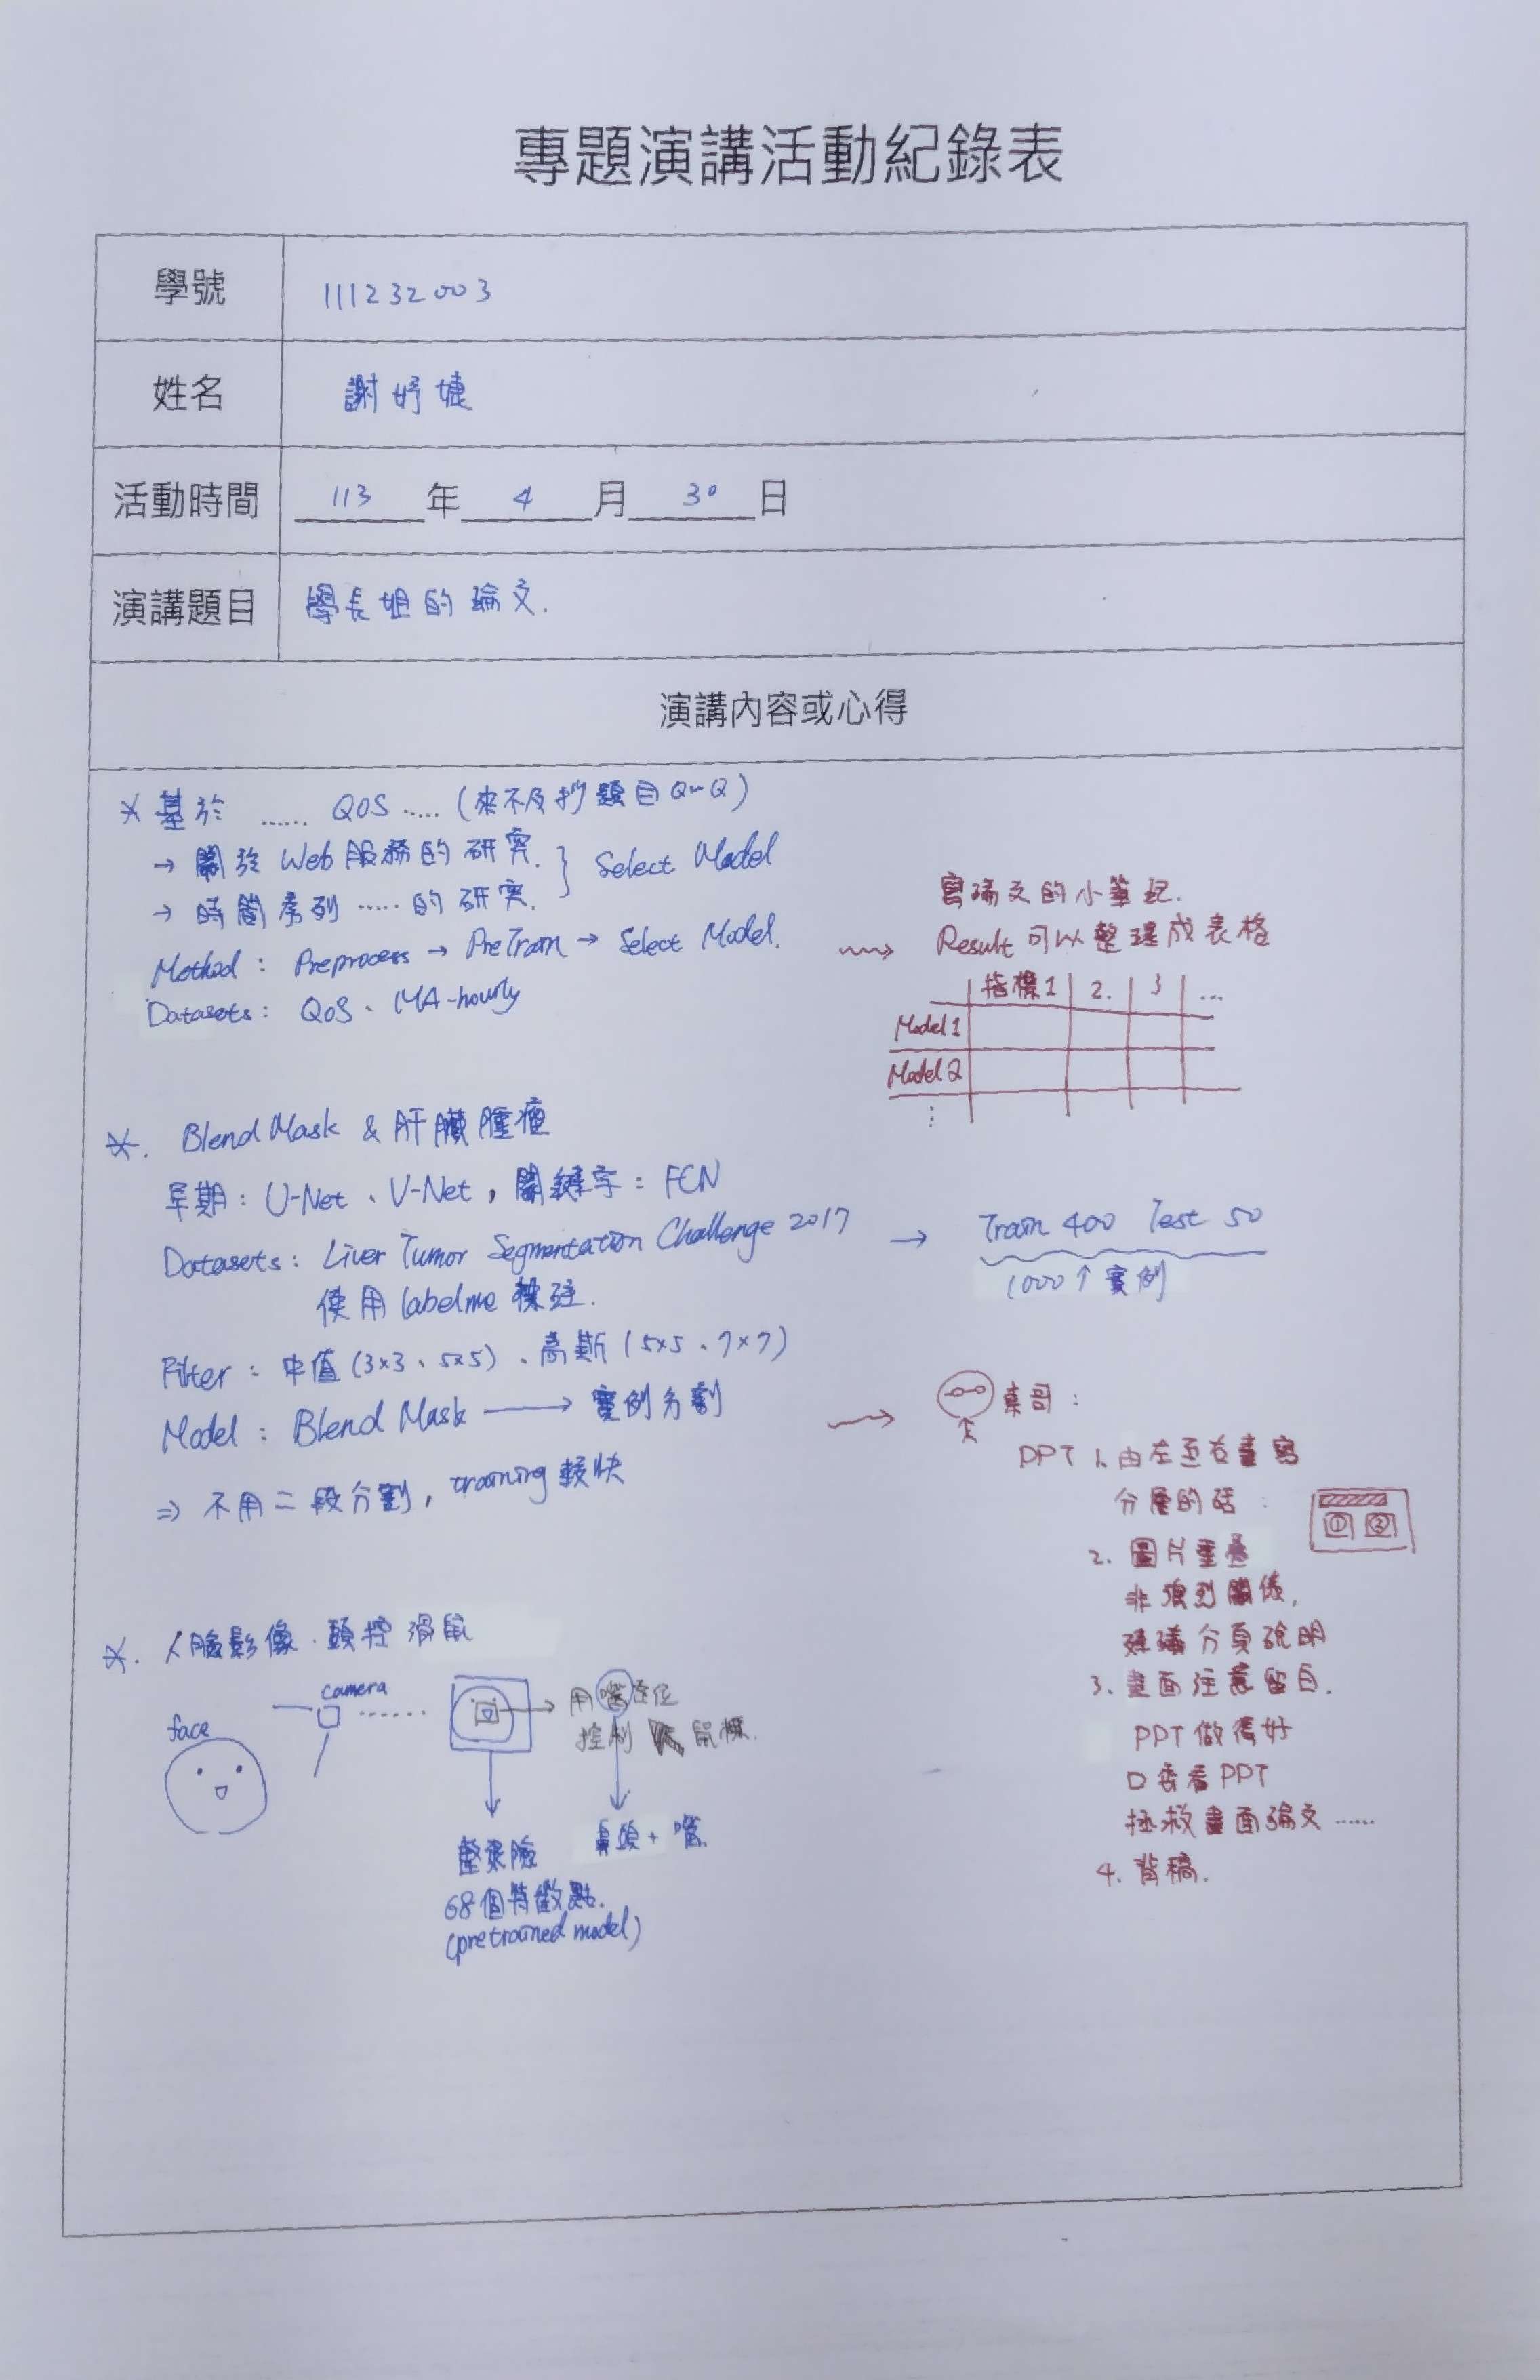 專題演講活動紀錄表
學號
111232003
姓名
謝妤婕
活動時間
113 年 4 月 30 日
演講題目
學長姐的論文.
演講內容或心得
* 基於 ...... QOS ..... (來不及抄題目QwQ)
→ 關於 Web 服務的研究.
→ 時間序列 ..... 的研究.
} Select Model
Method : Preprocess → PreTrain → Select Model.
Datasets : QoS、MA-hourly
寫論文的小筆記.
Result 可以整理成表格
指標1 2. 3 ...
Model 1
Model 2
⋮
*. Blend Mask & 肝臟腫瘤
早期 : U-Net、V-Net , 關鍵字 : FCN
Datasets : Liver Tumor Segmentation Challenge 2017 → Train 400 Test 50
1000↑實例
使用 labelme 標註.
Filter : 中值 (3×3、5×5)、高斯 (5×5、7×7)
Model : Blend Mask → 實例分割
⇒ 不用二段分割, training 較快
東哥 :
PPT 1. 由左至右書寫
分層的話 :
① ②
2. 圖片重疊
非強烈關係,
建議分頁說明
3. 畫面注意留白.
PPT 做得好
口委看 PPT
拯救畫面論文 ......
4. 背稿.
*. 人臉影像.頭控滑鼠
face
camera
......
→ 用嘴
控制 鼠標.
整張臉
68個特徵點.
(pretrained model)
鼻頭 + 嘴.